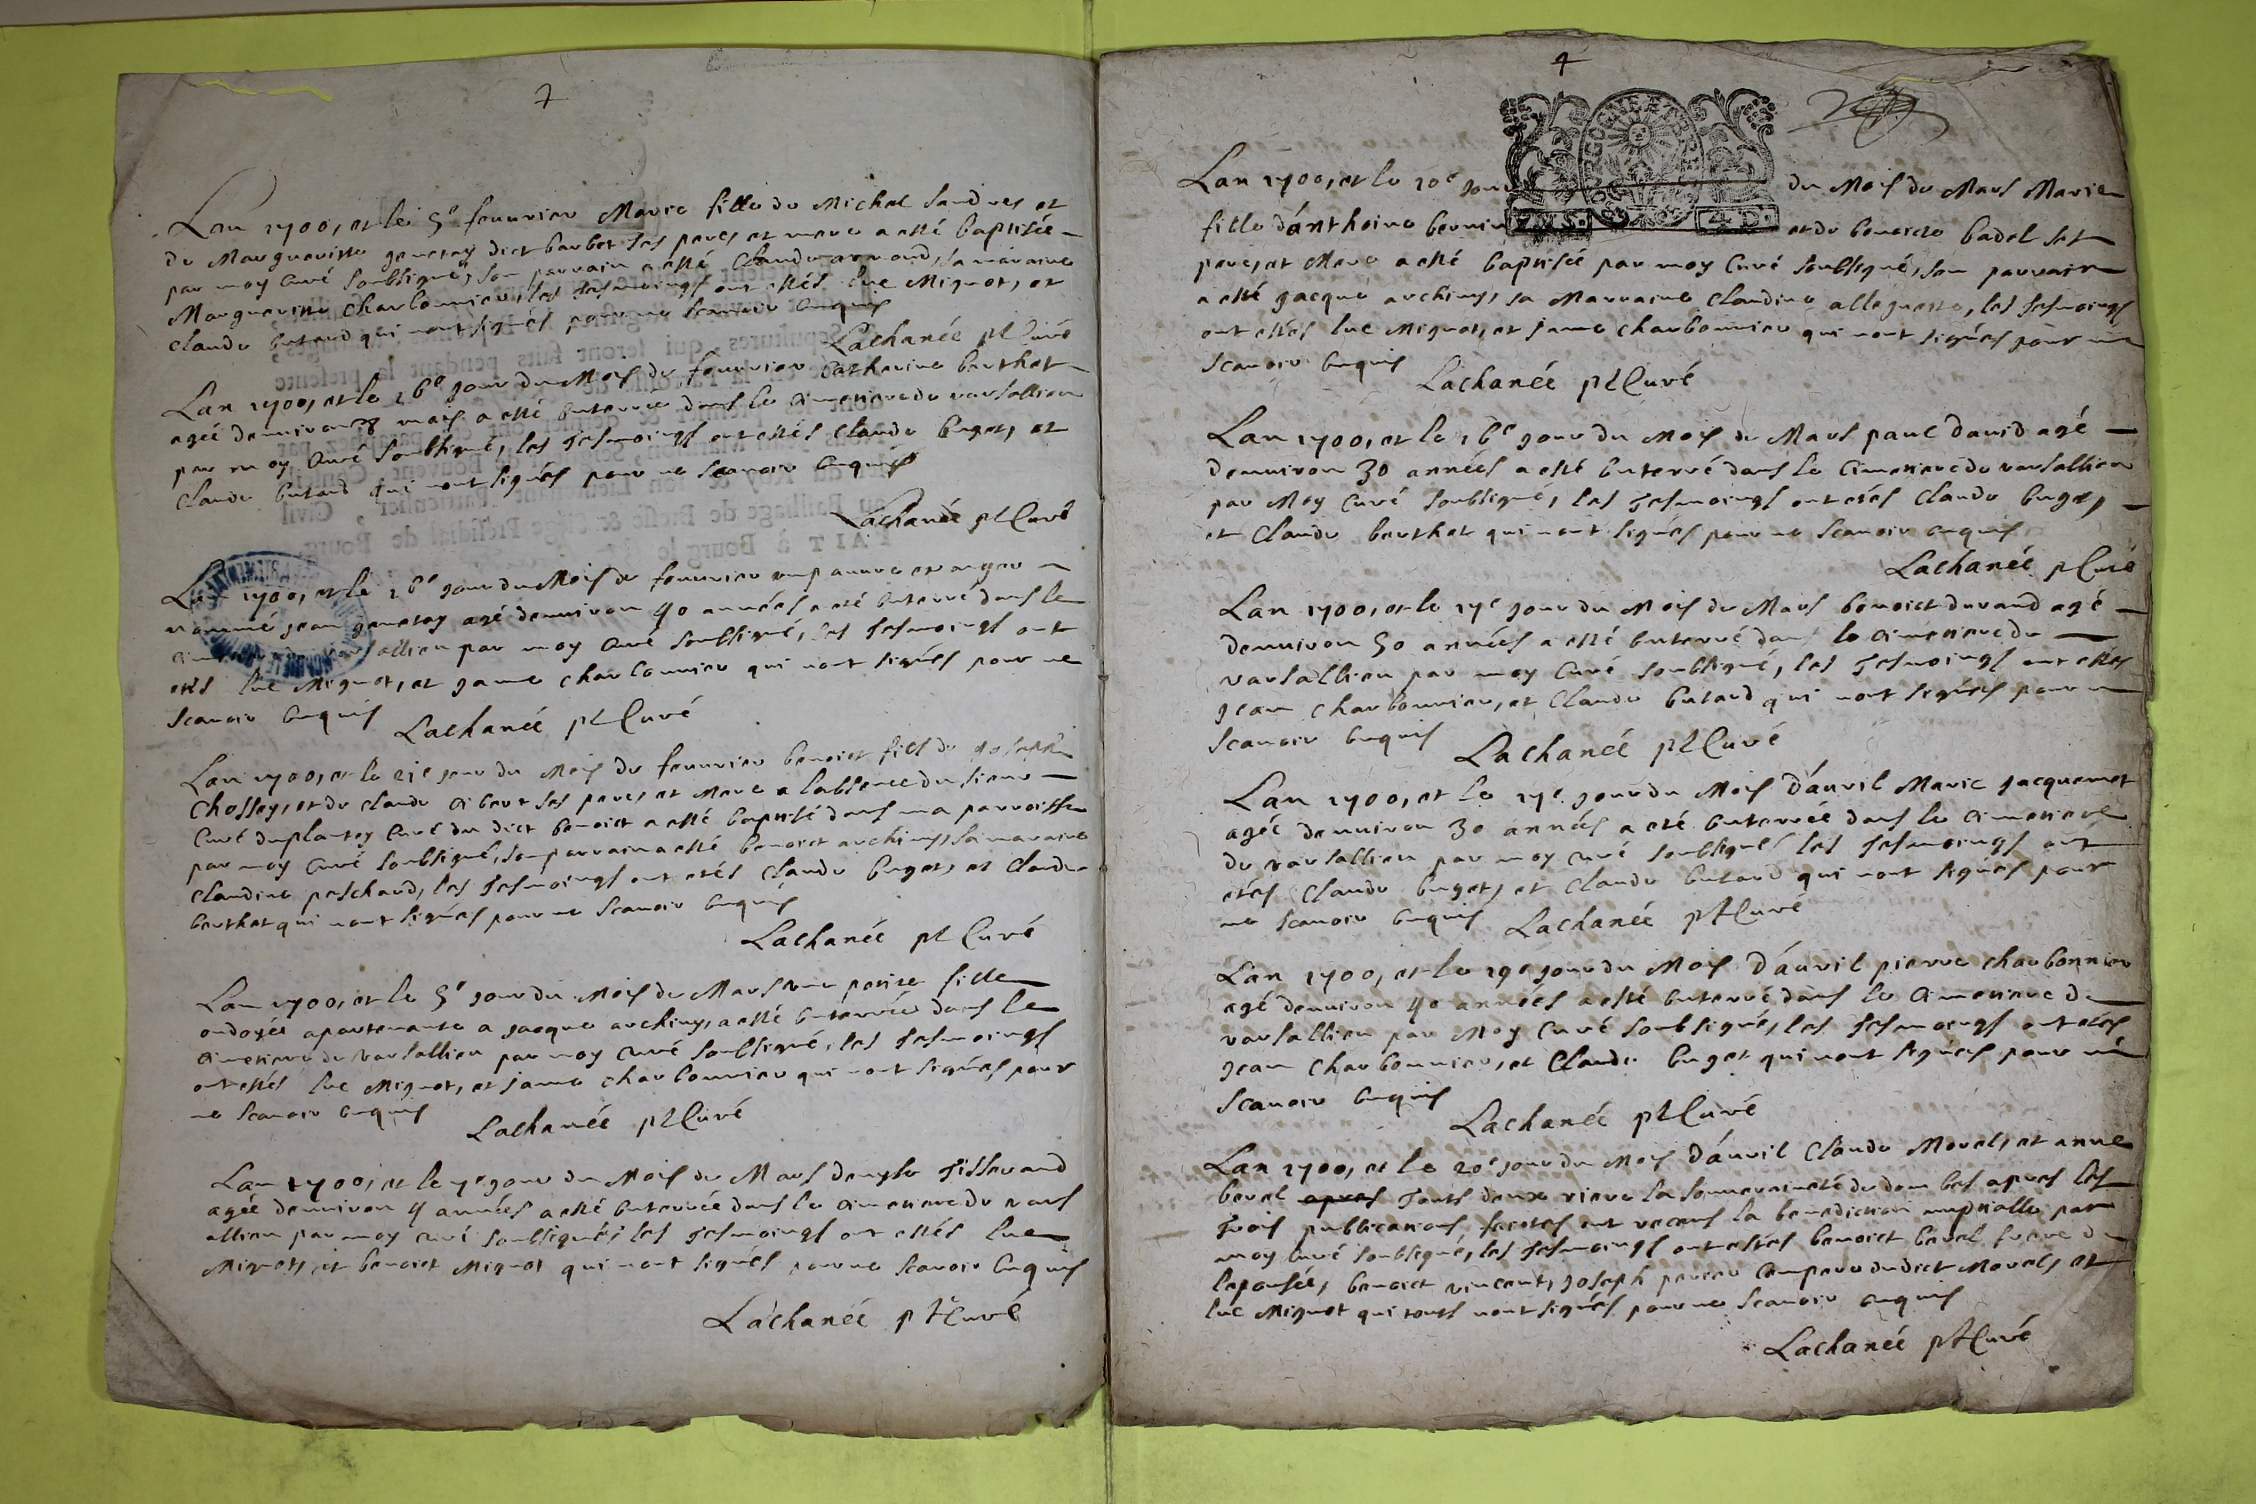 Lan 1700, et le 5e feuurier Marie fille de Michel Sandres et
de Margueritte genetay dict barbet ses pere, et mere a esté baptisée
par moy curé soubsigné, son parrain a esté Claude armand, sa maraine
Margueritte Charbonnier, les tesmoings ont estés luc Mignot, et
claude butaud qui nont signés pour ne scauoir enquis
Lachanéé ptCuré
Lan 1700, et le 16e jour du Mois de feuurier Catherine berthet
agéé denuiron mois a esté enterrée dans le cimetiere de versallieu
par moy curé soubsigné, les tesmoings ont estés Claude buget, et
claude butaud qui nont signés pour ne scauoir enquis
Lachanéé ptCuré
Lan 1700, et le 16e jour du Mois de feuurier un pauure estranger
nommé jean genetay agé denuiron 40 années a esté enterré dans le
cimetiere de versallieu par moy curé soubsigné, les tesmoings ont
estés luc Mignot, et jame charbonnier qui nont signés pour ne
scauoir enquis Lachanéé ptCuré
Lan 1700, et le 21e jour du Mois de feuurier benoict fils de joseph
Chossey, et de claude ses pere, et mere a labsence du sieur
Curé duplantey Curé du dict benoict a esté baptisé dans ma parroisse
par moy curé soubsigné, son parrain a esté benoict archiny, sa maraine
claudine peschaud, les tesmoings ont estés claude buget, et claude
berthet qui nont signés pour ne scauoir enquis
Lachanéé pt Curé
Lan 1700, et le 5e jour du Mois de Mars une petite fille
ondoyéé apartenante a jacque archiny, a esté enterréé dans le
cimetiere de versallieu par moy curé soubsigné, les tesmoings
ont estés luc Mignot, et jame charbonnier qui nont signés pour
ne scauoir enquis Lachanéé ptCuré
Lan 1700, et le 7e jour du Mois de Mars denyse tisserand
agéé denuiron 4 années a esté enterréé dans le cimetiere de vers
allieu par moy curé soubsigné, les tesmoings ont estés luc
Mignot, et benoict Mignot qui nont signés pour ne scauoir enquis
Lachanéé ptCuré
4
Lan 1700, et le 10e jour du Mois de Mars Marie
fille dánthoine bernin et de benoicte badel ses
pere, et Mere a esté baptisée par moy Curé soubsigné, son parrain
a esté jacque archiny, sa Marraine claudine allegratte, les tesmoings
ont estés luc Mignot, et jame charbonnier qui nont signés pour ne
scauoir enquis Lachanéé ptCuré
Lan 1700, et le 16e jour du Mois de Mars paul dauid agé
denuiron 30 années a esté enterré dans le cimetiere de versallieu
par Moy curé soubsigné, les tesmoings ont estés claude buget,
et Claude berthet qui nont signés pour ne scauoir enquis
Lachanéé ptCuré
Lan 1700, et le 17e jour du Mois de Mars benoict durand agé
denuiron 50 années a esté enterré dans le cimetiere de
versallieu par moy curé soubsigné, les tesmoings ont estés
jean charbonnier, et Claude butaud qui nont signés pour ne
scauoir enquis Lachanéé ptCuré
Lan 1700, et le 17e jour du Mois dáuril Marie jacquemet
agéé denuiron 30 années a esté enterréé dans le cimetiere
de versallieu par moy curé soubsigné les tesmoings ont
estés Claude buget, et claude butaud qui nont signés pour
ne scauoir enquis Lachanéé ptCuré
Lan 1700, et le 19e jour du Mois dáuril pierre charbonnier
agé denuiron 40 années a esté enterré dans le cimetiere de
versallieu par Moy curé soubsigné, les tesmoings ont estés
jean charbonnier, et Claude buget qui nont signés pour ne
scauoir enquis
Lachanéé ptCuré
Lan 1700, et le 20e jour du Mois dáuril Claude Morel, et anne
berel apres touts deux riere la souueraineté de dombes apres les
trois publications faictes ont receus la benediction nuptialle par
moy Curé soubsigné, les tesmoings ont estés benoict berel frere de
lepouséé, benoict vincent, joseph perier compere dudict Morel, et
luc Mignot qui touts nont signés pour ne scauoir enquis
Lachanéé ptCuré